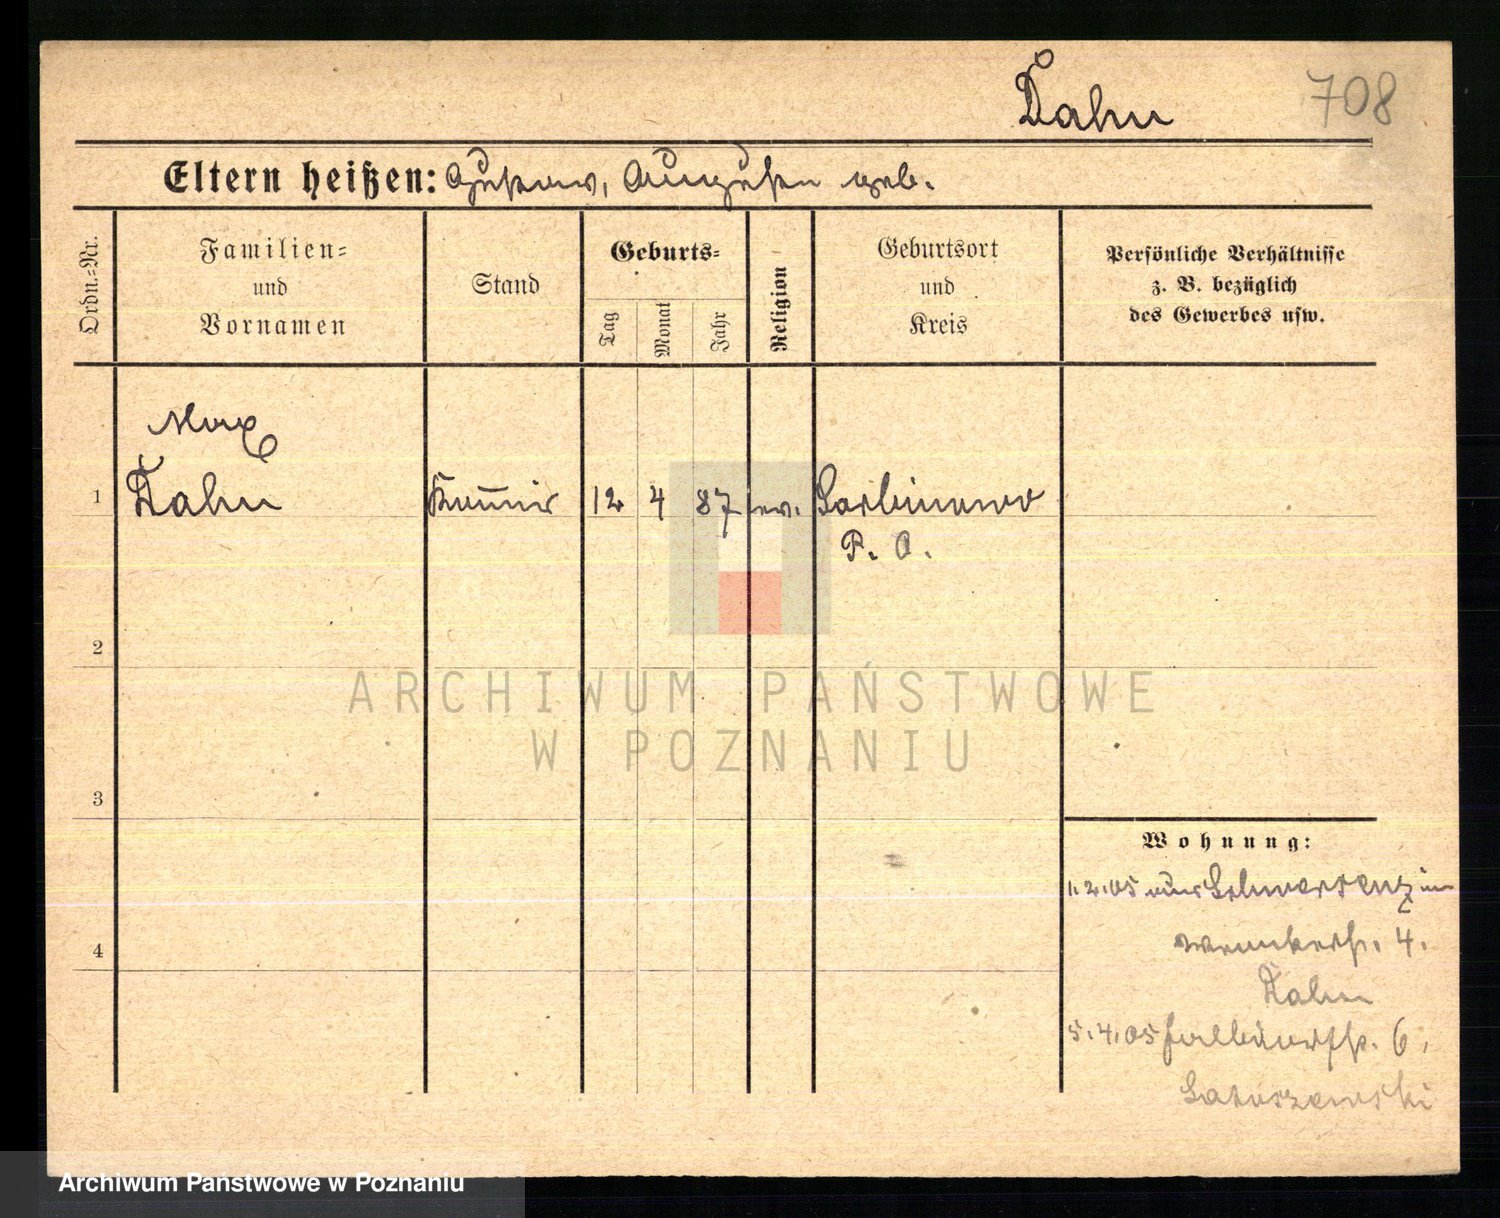 Dahn
708
Eltern heißen: Gustav, Auguste geb.
Ordn.=Nr.
Familien=
und
Vornamen
Stand
Geburts=
Tag
Monat
Jahr
Religion
Geburtsort
und
Kreis
Persönliche Verhältnisse
z. B. bezüglich
des Gewerbes usw.
Max
1 Dahn 12 4 87 ev.
P. O.
2
3
4
ARCHIWUM PAŃSTWOWE
W POZNANIU
Wohnung:
1.2.05 aus Schwersenz
4.
Dahn
5.4.05 6.
Archiwum Państwowe w Poznaniu